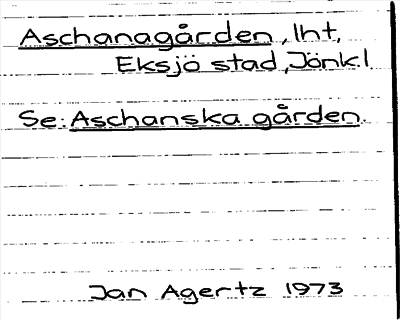 Aschanagården, lht,
Eksjö stad, Jönk.l
Se: Aschanska gården.
Jan Agertz 1973